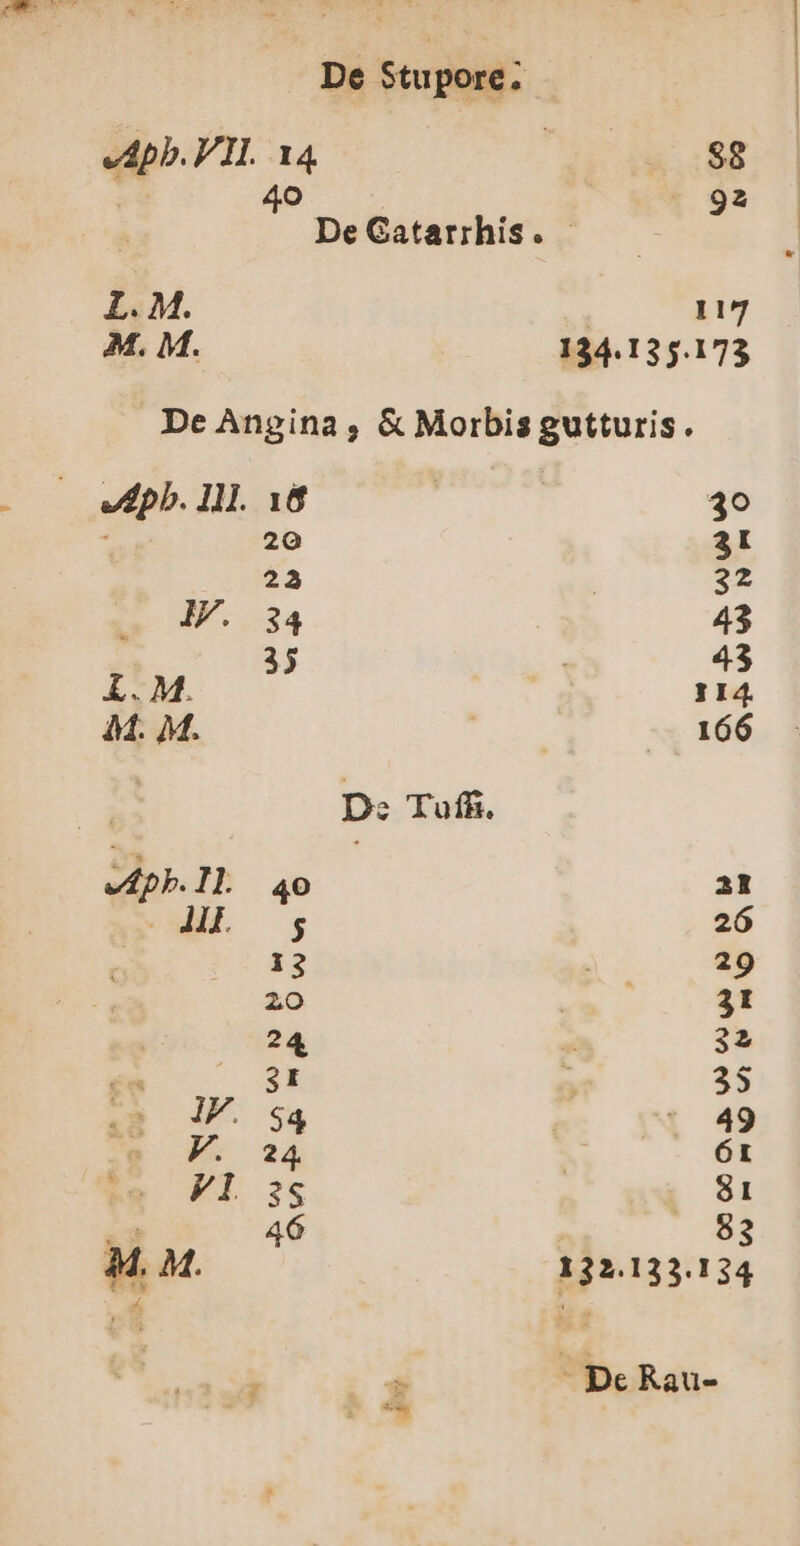 De Stupore.
Aph. VII. 14 88
40 92
De Catarrhis.
L. M. 117
M. M. 134.135.173
De Angina, & Morbis gutturis.
Aph. III. 16 30
20 31
23 32
IV. 34 43
35 43
L. M. 114
M. M. 166
De Tussi.
Aph. II. 40 21
III. 5 26
13 29
20 31
24 32
31 35
IV. 54 49
V. 24 61
VI 35 81
46 83
M. M. 132.133.134
De Rau-